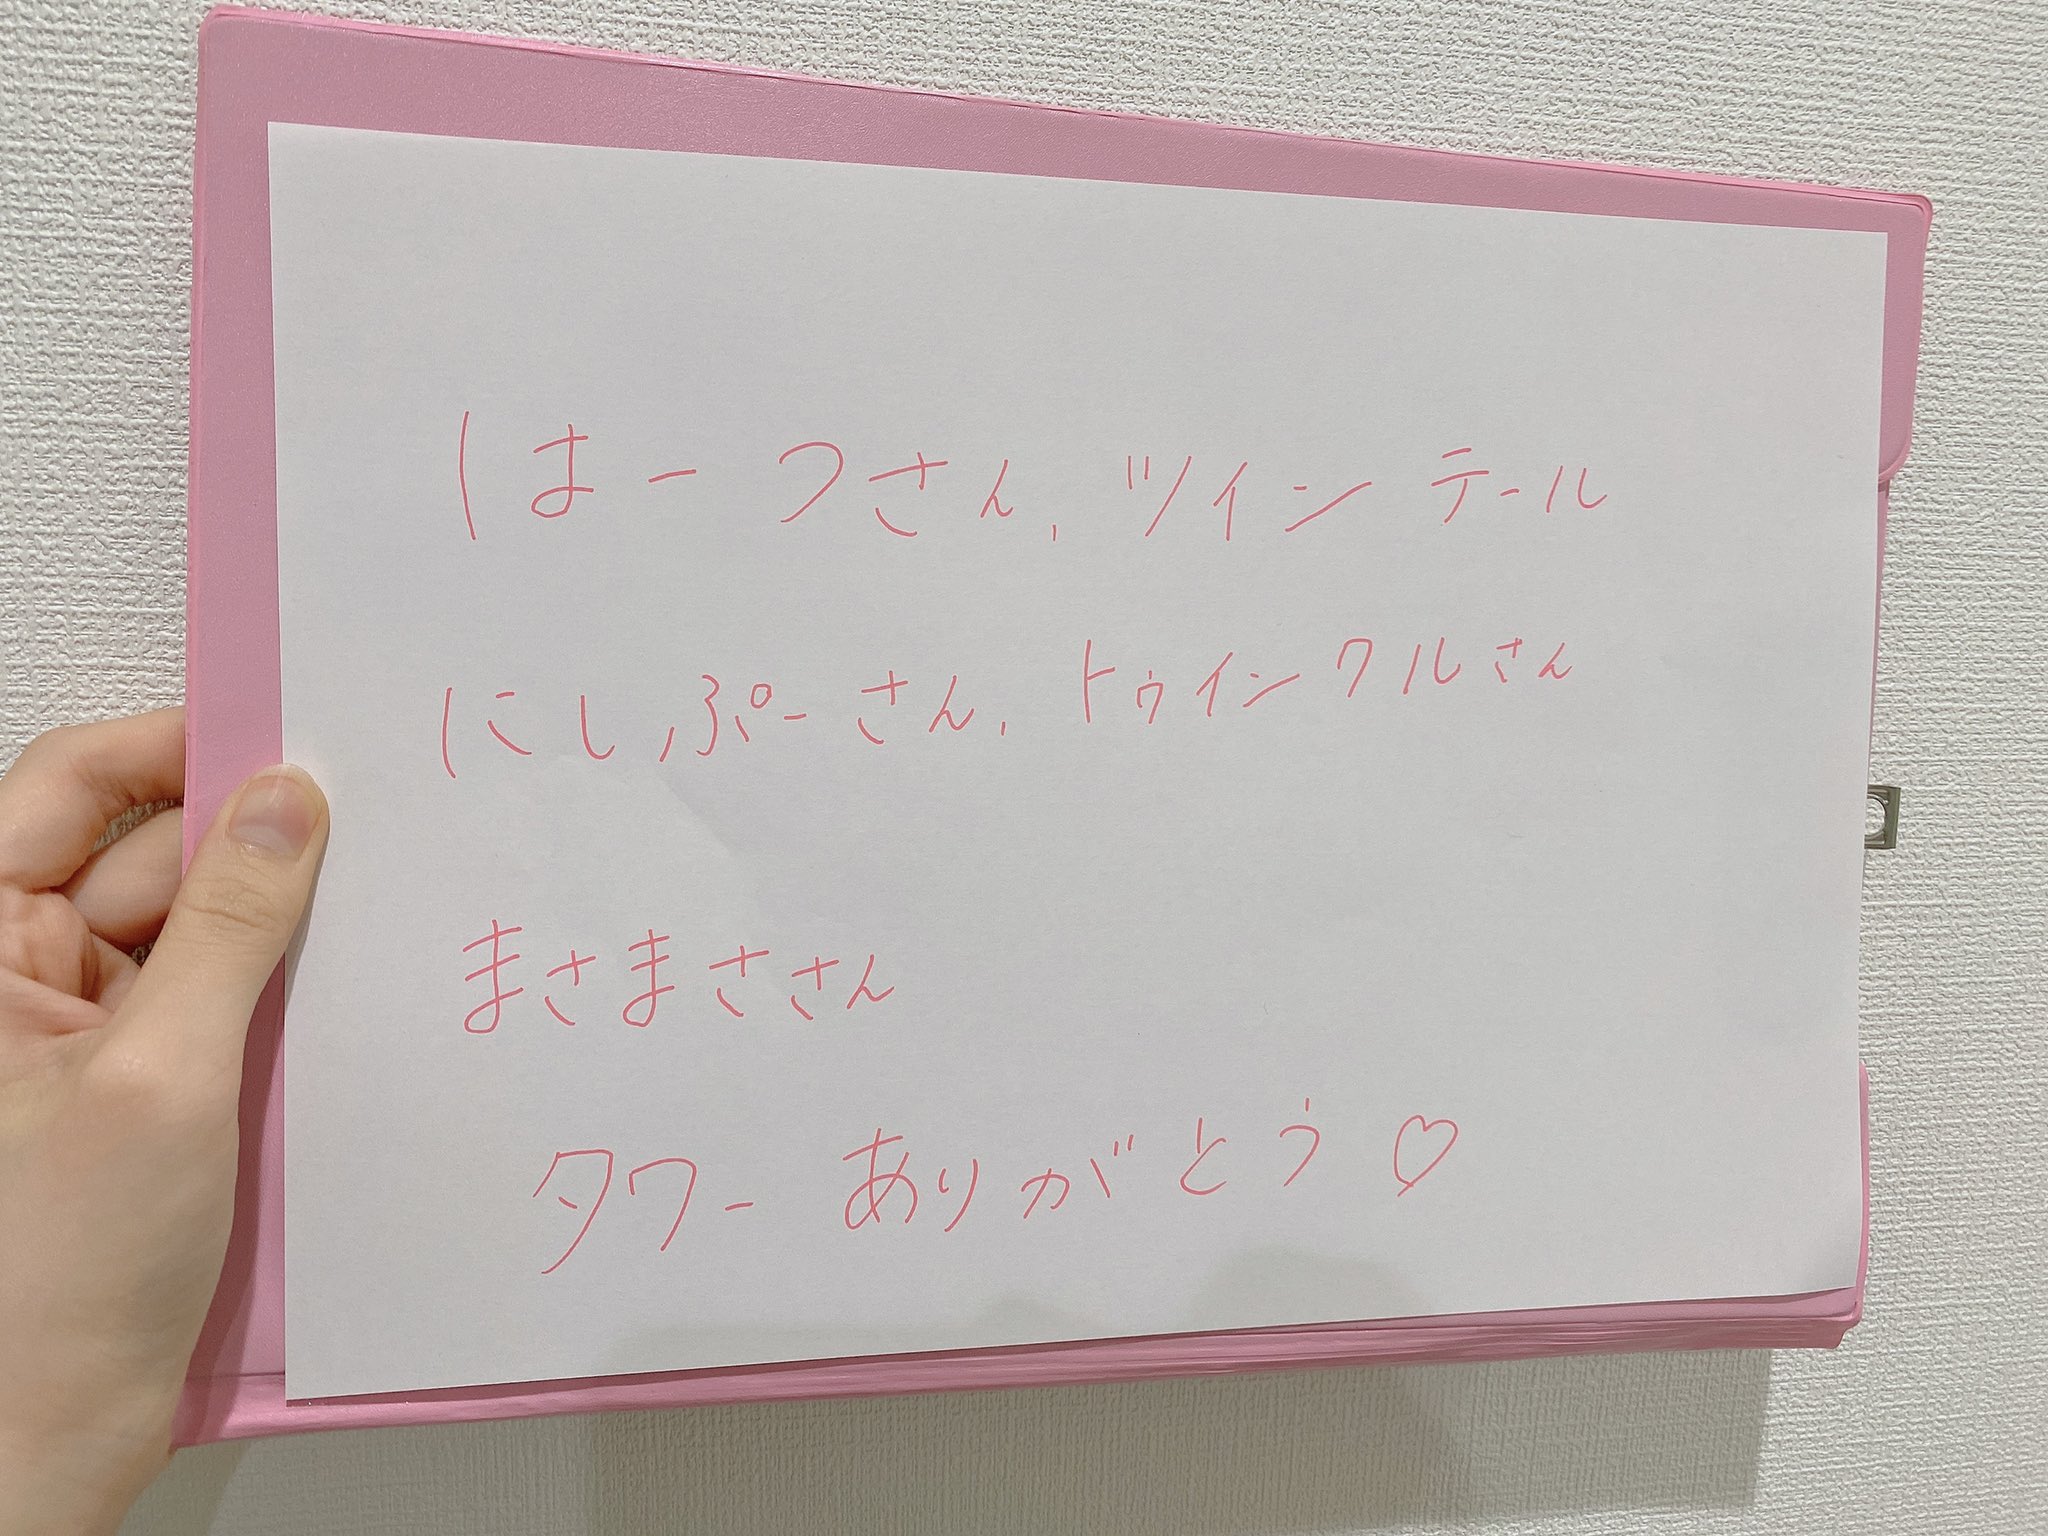 はーつさん、ツインテール
にしぷーさん、トゥインクルさん
まさまささん
タワーありがとう♡